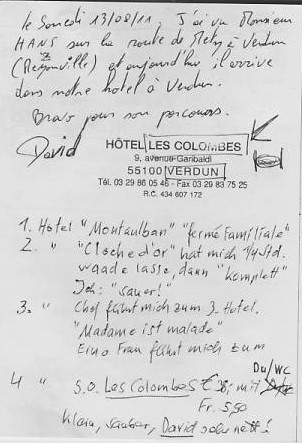 le Samedi 13/08/11, J'ai vu Monsieur
HANS sur la route de Metz à Verdun
(Rezonville) et aujourd'hui il arrive
dans notre hotel à Verdun.
Bravo pour son parcours.
David
HÔTEL LES COLOMBES
9, avenue Garibaldi
55100 VERDUN
Tél. 03 29 86 05 46 - Fax 03 29 83 75 25
R.C. 434 607 172
1. Hotel "Montaulban" "fermé familiale"
2. " "Cloche d'or" hat mich 1/4 Std.
waade lasse, dann "komplett"
Ich: "sauer!"
3. " Chef fährt mich zum 3. Hotel.
"Madame ist malade"
Eine Frau fährt mich zum
Du/WC
4 " s.o. Les Colombes € 38,- mit
Fr. 5,50
klein, sauber, David sehr nett!